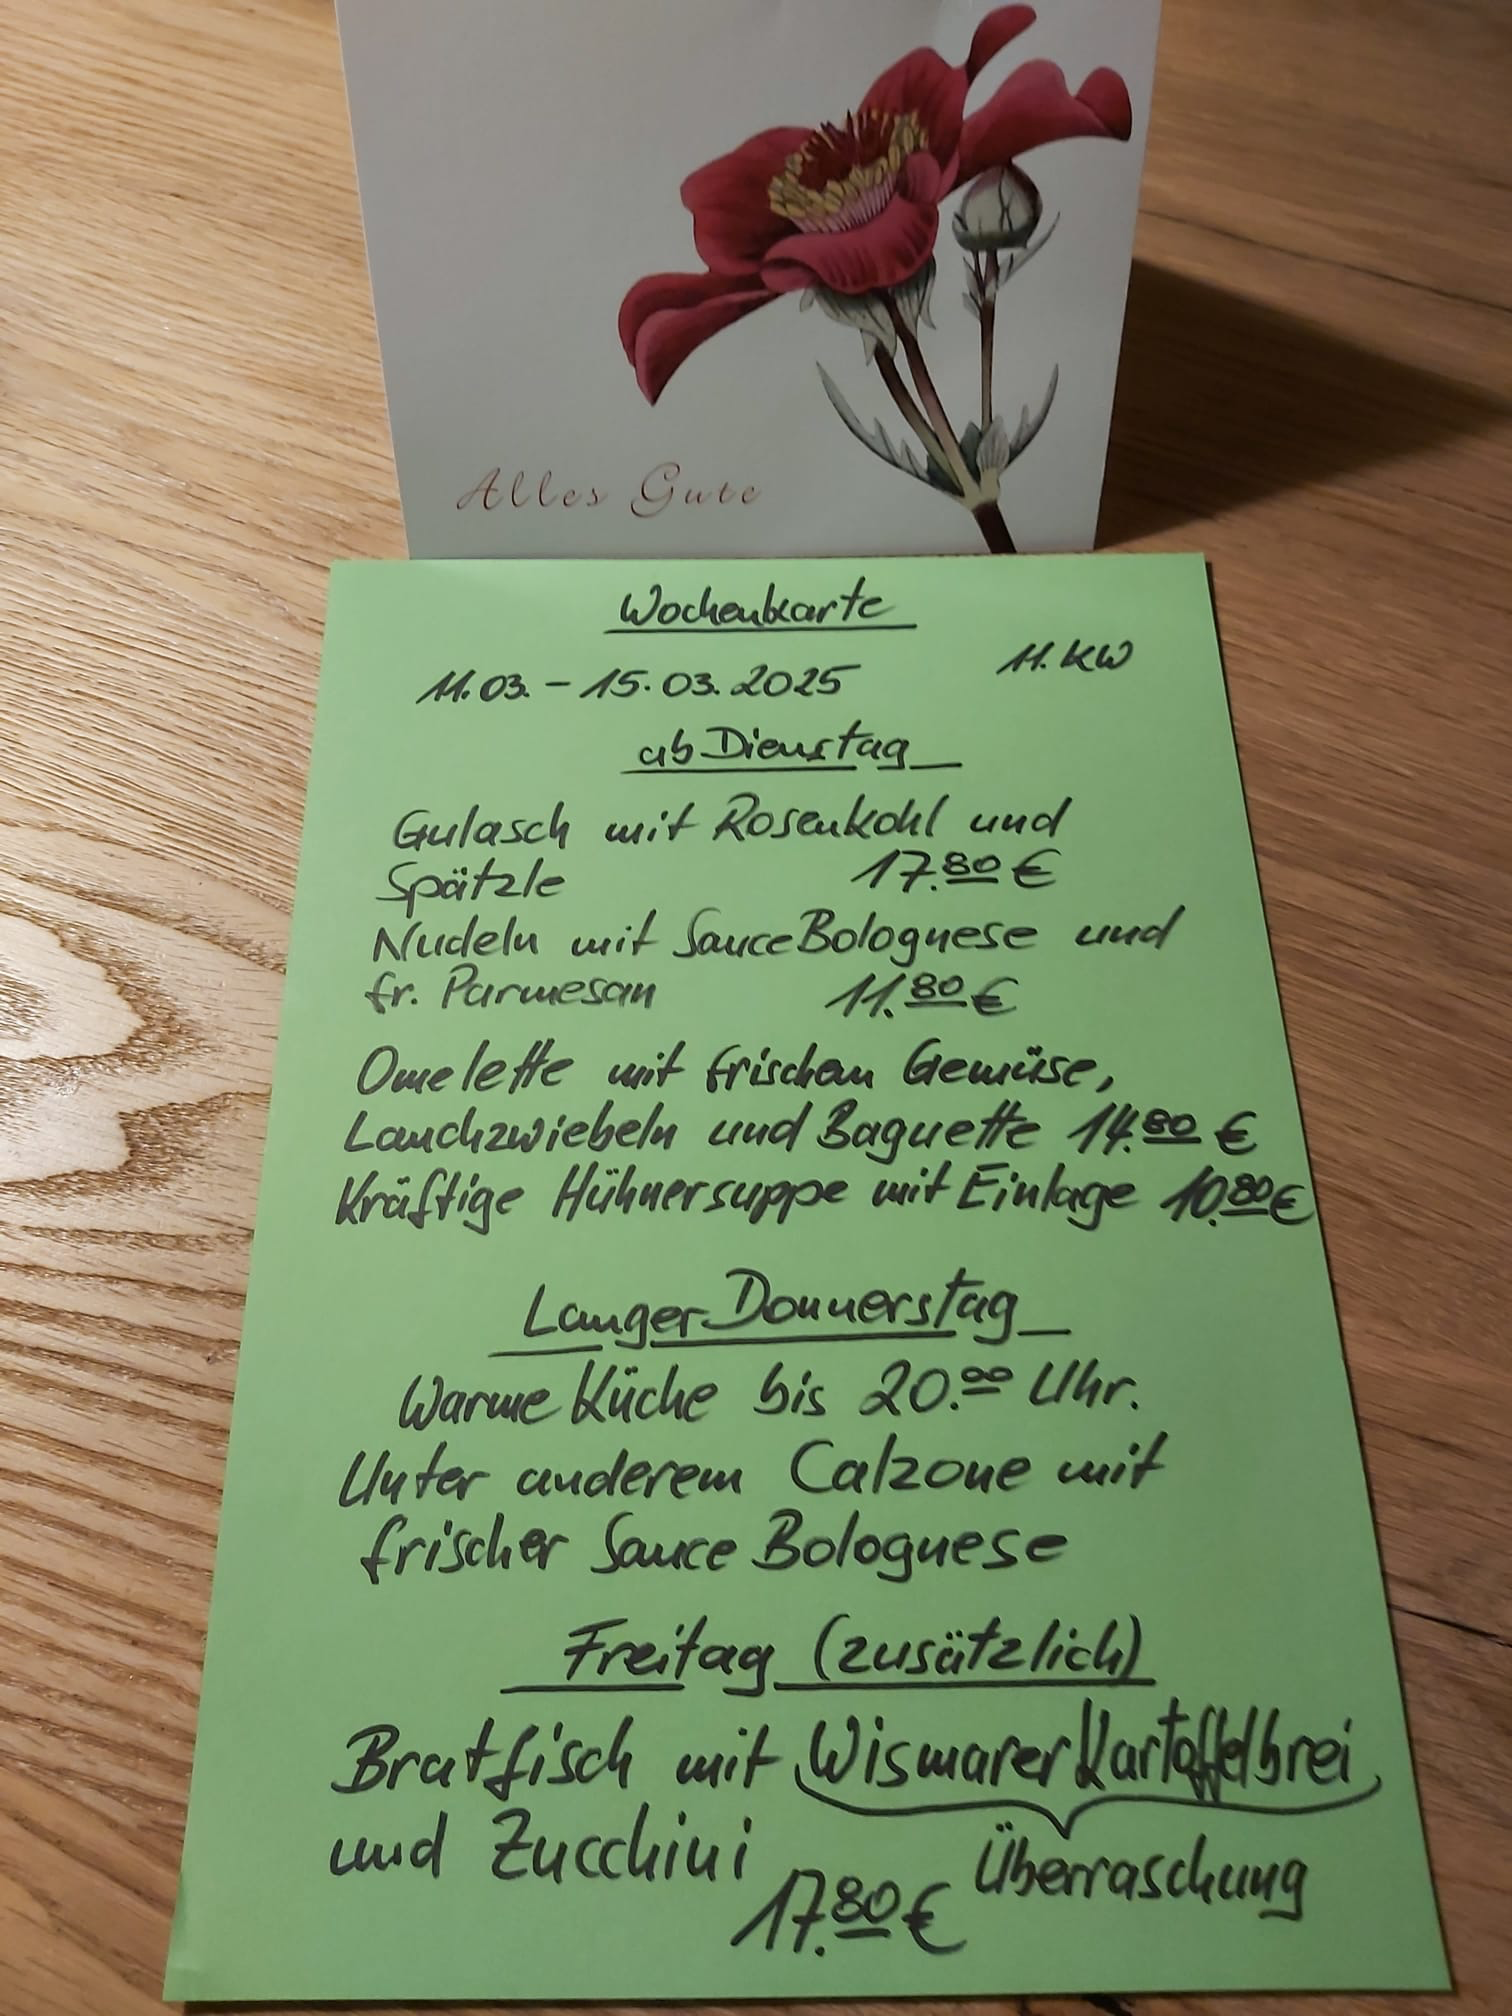 Alles Gute
Wochenkarte
11. KW
11.03. - 15.03.2025
ab Dienstag
Gulasch mit Rosenkohl und
Spätzle 17.80 €
Nudeln mit Sauce Bolognese und
fr. Parmesan 11.80 €
Omelette mit frischem Gemüse,
Lauchzwiebeln und Baguette 14.80 €
Kräftige Hühnersuppe mit Einlage 10.80 €
Langer Donnerstag
Warme Küche bis 20.00 Uhr.
Unter anderem Calzone mit
frischer Sauce Bolognese
Freitag (zusätzlich)
Bratfisch mit Wismarer Kartoffelbrei
und Zucchini Überraschung
17.80 €